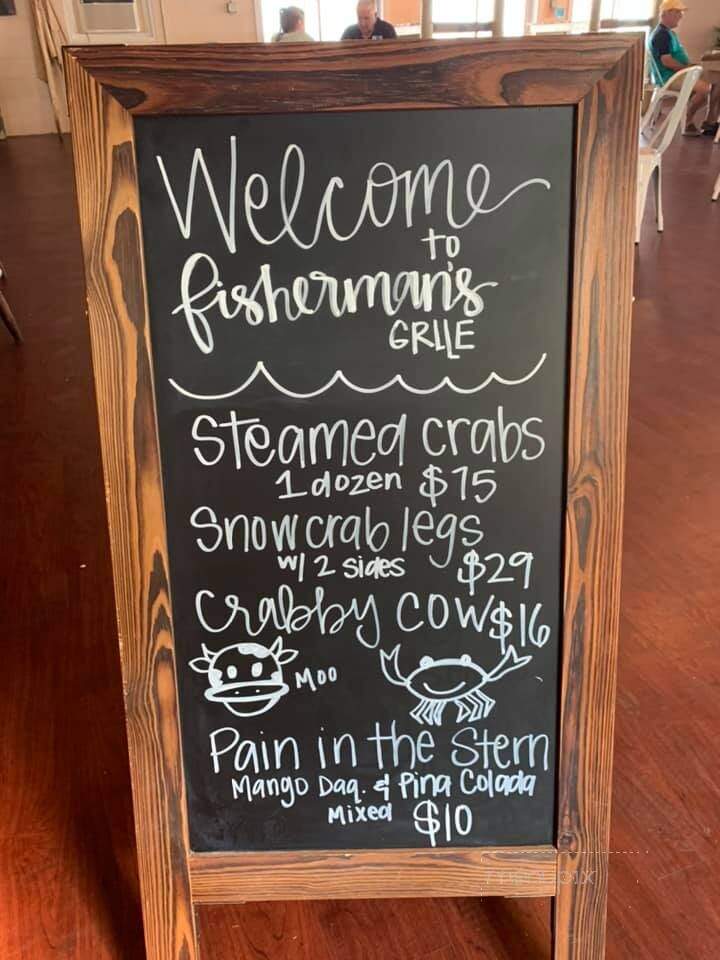 Welcome
to
fisherman's
GRILE
Steamed crabs
1 dozen $75
Snow crab legs
w/ 2 sides $29
Crabby cow $16
Moo
Pain in the Stern
Mango Daq. & Pina Colada
Mixed $10